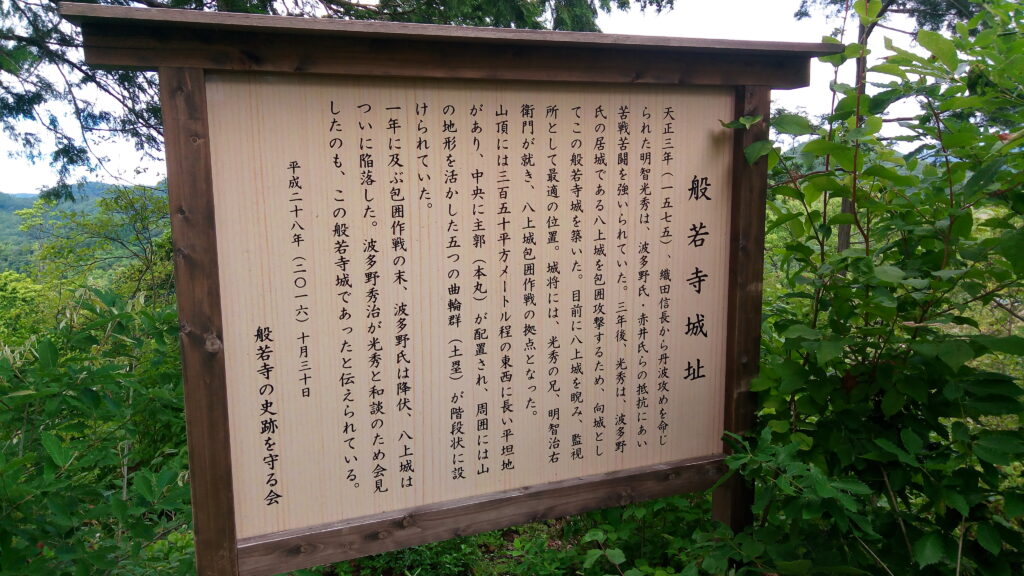 般若寺城址
天正三年（一五七五）、織田信長から丹波攻めを命じ
られた明智光秀は、波多野氏、赤井氏らの抵抗にあい
苦戦苦闘を強いられていた。三年後、光秀は、波多野
氏の居城である八上城を包囲攻撃するため、向城とし
てこの般若寺城を築いた。目前に八上城を睨み、監視
所として最適の位置。城将には、光秀の兄、明智治右
衛門が就き、八上城包囲作戦の拠点となった。
山頂には三百五十平方メートル程の東西に長い平坦地
があり、中央に主郭（本丸）が配置され、周囲には山
の地形を活かした五つの曲輪群（土塁）が階段状に設
けられていた。
一年に及ぶ包囲作戦の末、波多野氏は降伏、八上城は
ついに陥落した。波多野秀治が光秀と和談のため会見
したのも、この般若寺城であったと伝えられている。
平成二十八年（二〇一六）十月三十日
般若寺の史跡を守る会